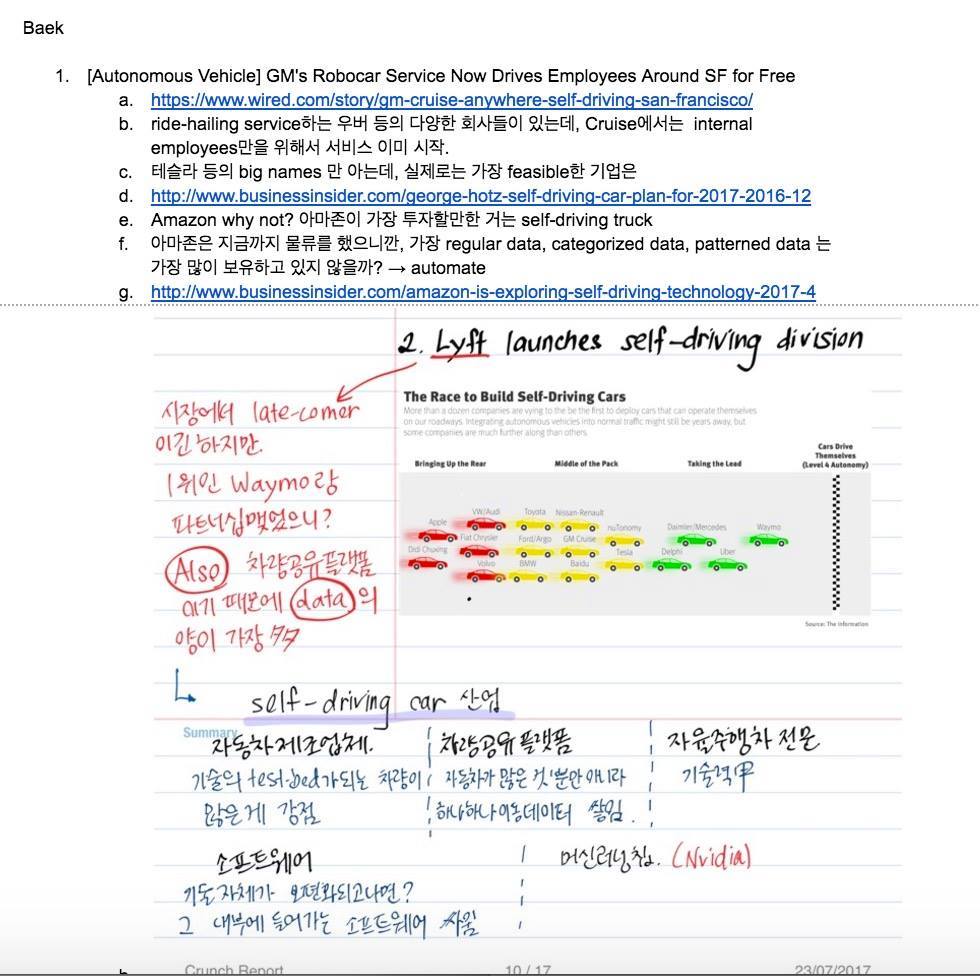 Baek
1. [Autonomous Vehicle] GM's Robocar Service Now Drives Employees Around SF for Free
a. https://www.wired.com/story/gm-cruise-anywhere-self-driving-san-francisco/
b. ride-hailing service하는 우버 등의 다양한 회사들이 있는데, Cruise에서는 internal
employees만을 위해서 서비스 이미 시작.
c. 테슬라 등의 big names 만 아는데, 실제로는 가장 feasible한 기업은
d. http://www.businessinsider.com/george-hotz-self-driving-car-plan-for-2017-2016-12
e. Amazon why not? 아마존이 가장 투자할만한 거는 self-driving truck
f. 아마존은 지금까지 물류를 했으니깐, 가장 regular data, categorized data, patterned data 는
가장 많이 보유하고 있지 않을까? → automate
g. http://www.businessinsider.com/amazon-is-exploring-self-driving-technology-2017-4
2. Lyft launches self-driving division
시장에서 late-comer
이긴 하지만.
1위인 Waymo랑
파트너십 맺었으니?
Also 차량공유플랫폼
이기 때문에 data의
양이 가장 多
The Race to Build Self-Driving Cars
More than a dozen companies are vying to the be the first to deploy cars that can operate themselves
on our roadways. Integrating autonomous vehicles into normal traffic might still be years away, but
some companies are much further along than others.
Bringing Up the Rear
Middle of the Pack
Taking the Lead
Cars Drive
Themselves
(Level 4 Autonomy)
Apple
VW/Audi
Toyota
Nissan-Renault
nuTonomy
Daimler/Mercedes
Waymo
Didi Chuxing
Fiat Chrysler
Ford/Argo
GM Cruise
Tesla
Delphi
Uber
Volvo
BMW
Baidu
Source: The Information
self-driving car 산업
Summary
자동차제조업체.
기술의 test-bed가 되는 차량이
많은게 강점
차량공유 플랫폼
자동차가 많은 것 뿐만 아니라
하나하나 이동데이터 쌓임.
자율주행차 전문
기술력 甲
소프트웨어
기능 자체가 보편화되고나면?
그 내부에 들어가는 소프트웨어 싸움
머신러닝칩. (Nvidia)
Crunch Report
10 / 17
23/07/2017